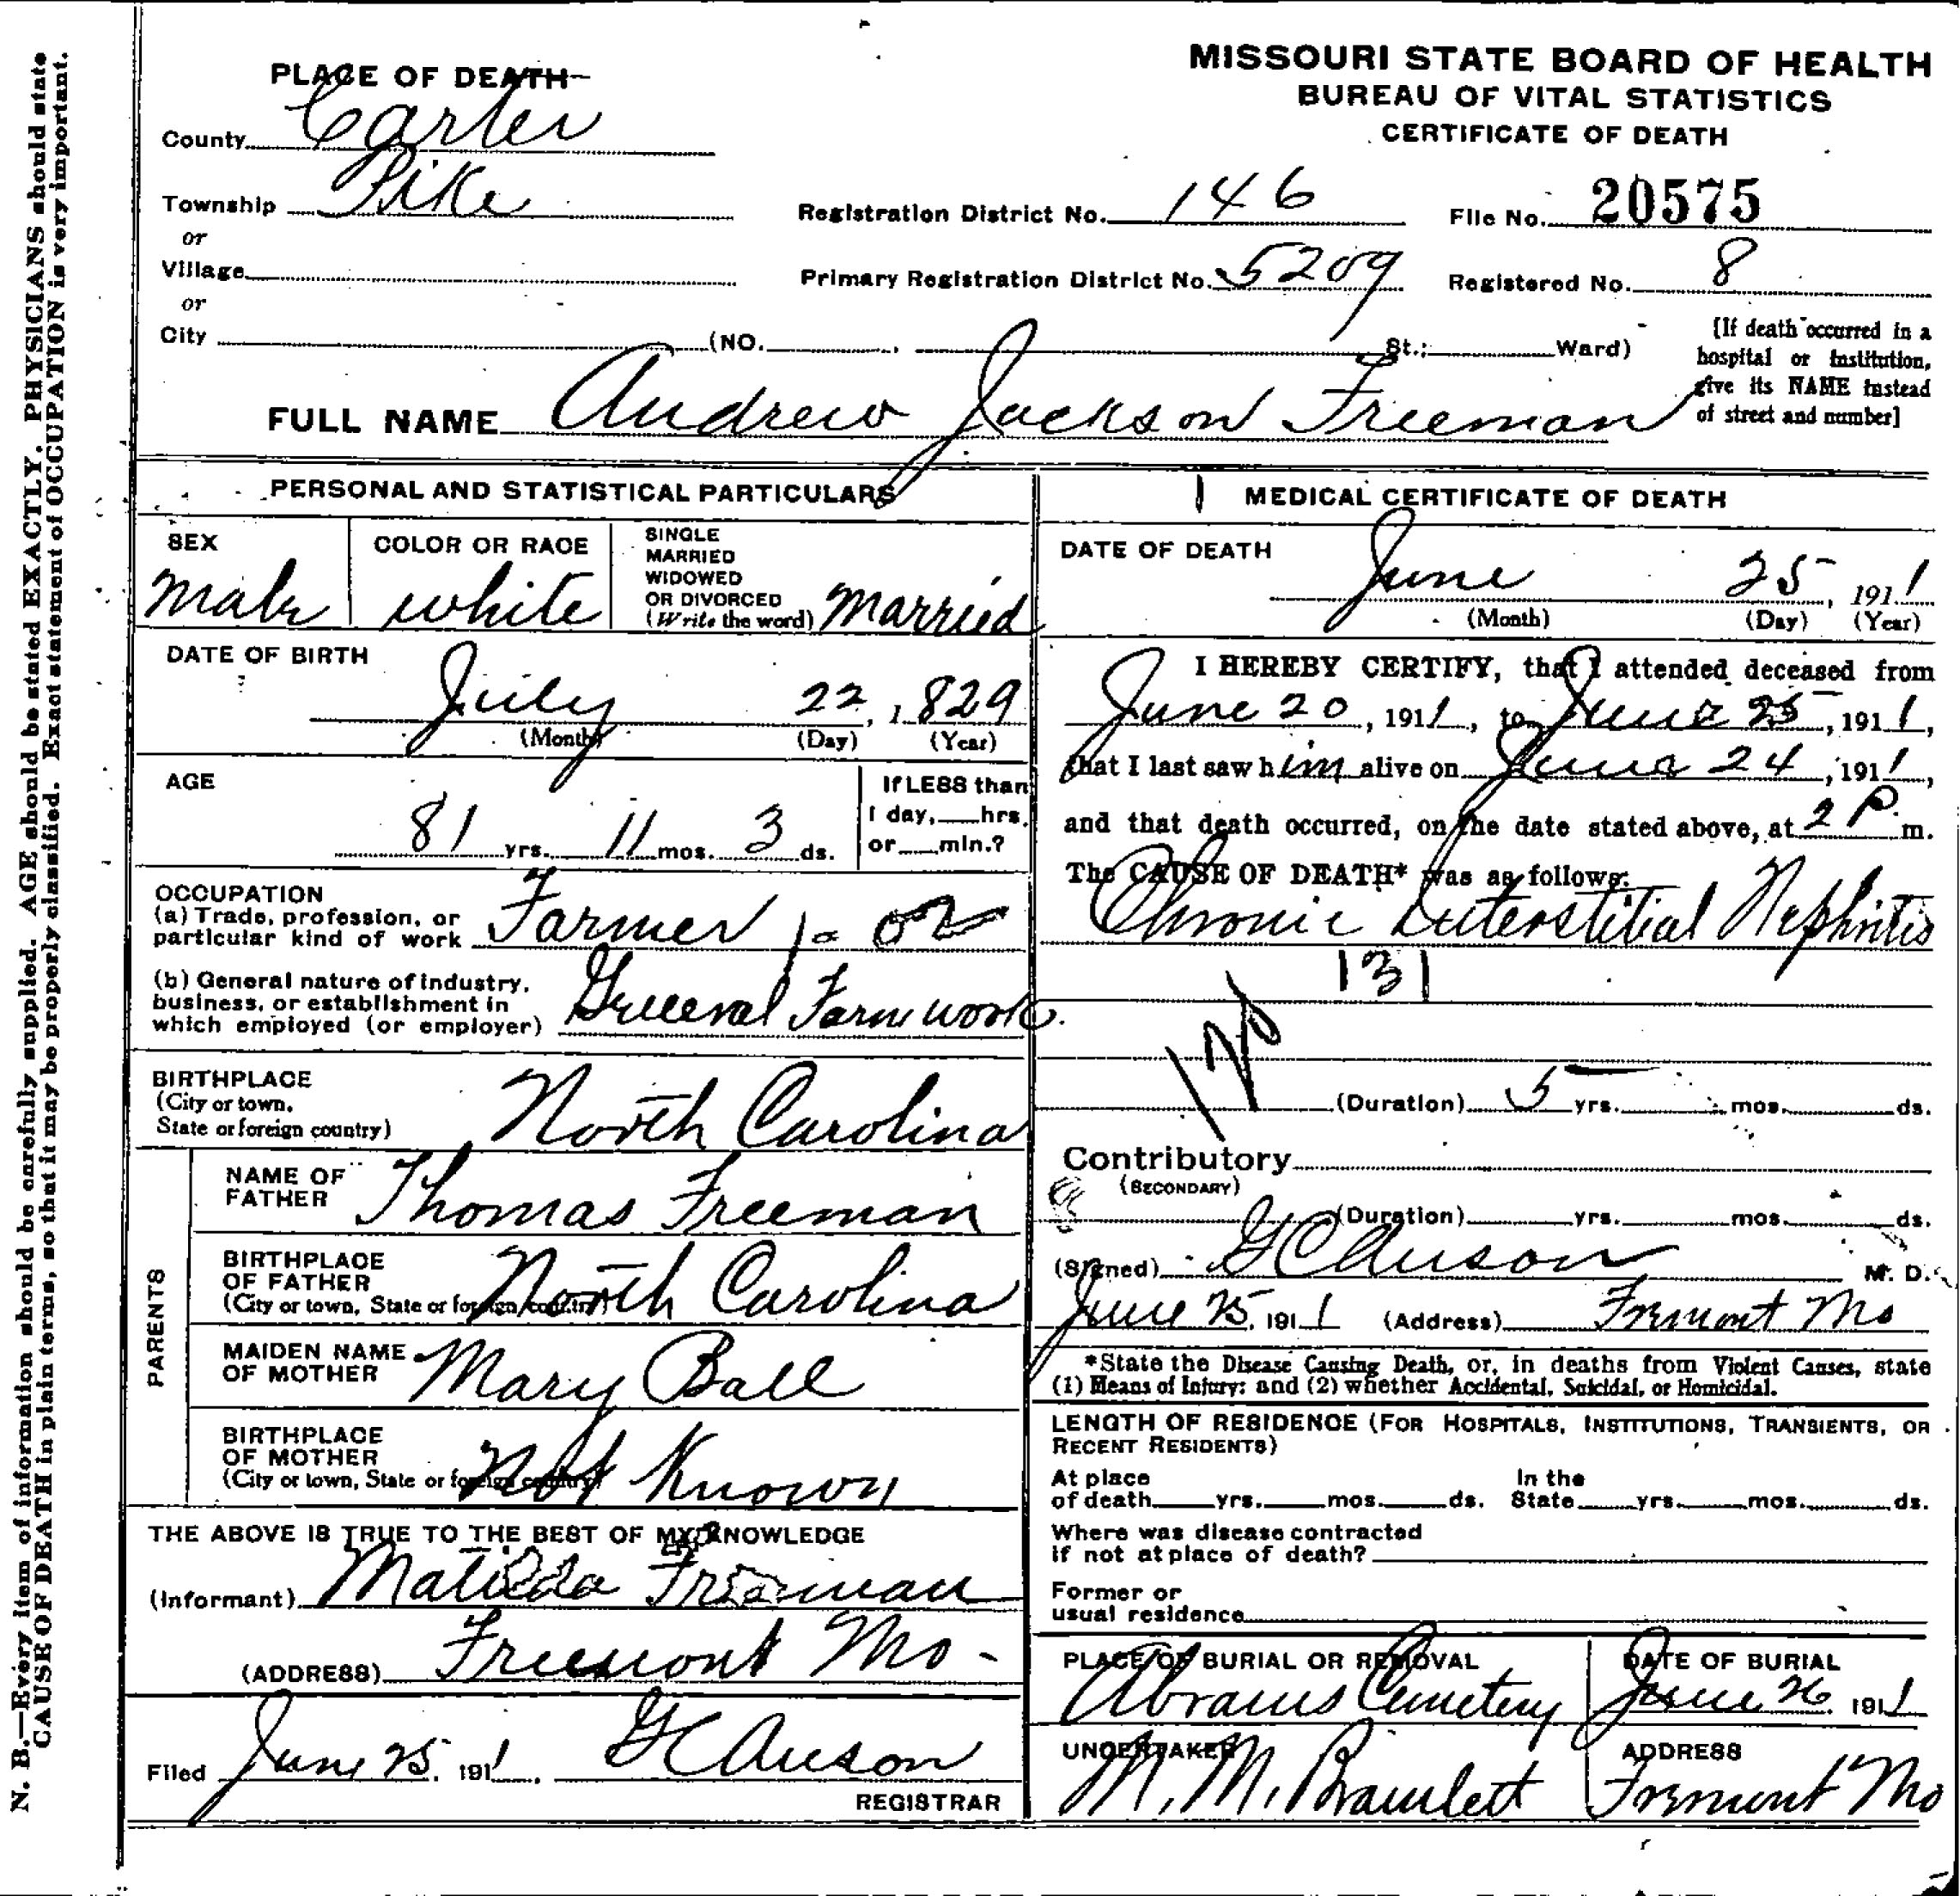 MISSOURI STATE BOARD OF HEALTH
BUREAU OF VITAL STATISTICS
CERTIFICATE OF DEATH
PLACE OF DEATH
County Carter
Township Pike
or
Village
or
City (NO. , St.; Ward)
Registration District No. 146 File No. 20575
Primary Registration District No. 5209 Registered No. 8
[If death occurred in a
hospital or institution,
give its NAME instead
of street and number]
FULL NAME Andrew Jackson Freeman
PERSONAL AND STATISTICAL PARTICULARS
SEX
Male
COLOR OR RACE
white
SINGLE
MARRIED
WIDOWED
OR DIVORCED
(Write the word) Married
DATE OF BIRTH
July 22, 1829
(Month) (Day) (Year)
AGE
81 yrs. 11 mos. 3 ds.
If LESS than
1 day, hrs.
or min.?
OCCUPATION
(a) Trade, profession, or
particular kind of work Farmer
(b) General nature of industry,
business, or establishment in
which employed (or employer) General Farm work
BIRTHPLACE
(City or town,
State or foreign country) North Carolina
PARENTS
NAME OF
FATHER Thomas Freeman
BIRTHPLACE
OF FATHER
(City or town, State or foreign country) North Carolina
MAIDEN NAME
OF MOTHER Mary Ball
BIRTHPLACE
OF MOTHER
(City or town, State or foreign country) Not Known
THE ABOVE IS TRUE TO THE BEST OF MY KNOWLEDGE
(Informant) Matilda Freeman
(ADDRESS) Freemont Mo-
Filed June 25, 1911, G C Auson
REGISTRAR
MEDICAL CERTIFICATE OF DEATH
DATE OF DEATH
June 25, 1911
(Month) (Day) (Year)
I HEREBY CERTIFY, that I attended deceased from
June 20, 1911, to June 25, 1911,
that I last saw him alive on June 24, 1911,
and that death occurred, on the date stated above, at 2 P. m.
The CAUSE OF DEATH* was as follows:
Chronic Interstitial Nephritis
131
(Duration) 5 yrs. mos. ds.
Contributory
(SECONDARY)
(Duration) yrs. mos. ds.
(Signed) G C Auson M. D.
June 25, 1911 (Address) Fremont Mo
*State the Disease Causing Death, or, in deaths from Violent Causes, state
(1) Means of Injury; and (2) whether Accidental, Suicidal, or Homicidal.
LENGTH OF RESIDENCE (FOR HOSPITALS, INSTITUTIONS, TRANSIENTS, OR
RECENT RESIDENTS)
At place
of death yrs. mos. ds.
In the
State yrs. mos. ds.
Where was disease contracted
if not at place of death?
Former or
usual residence
PLACE OF BURIAL OR REMOVAL
Abrams Cemetery
DATE OF BURIAL
June 26, 1911
UNDERTAKER
M. M. Bramlett
ADDRESS
Fremont Mo
N. B.—Every item of information should be carefully supplied. AGE should be stated EXACTLY. PHYSICIANS should state
CAUSE OF DEATH in plain terms, so that it may be properly classified. Exact statement of OCCUPATION is very important.